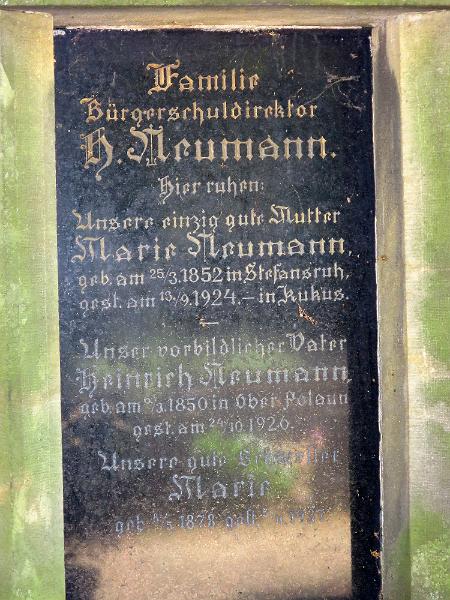 Familie
Bürgerschuldirektor
H. Neumann.
Hier ruhen:
Unsere einzig gute Mutter
Marie Neumann,
geb. am 25/3.1852 in Stefansruh,
gest. am 13/9.1924.– in Kukus.
Unser vorbildlicher Vater
Heinrich Neumann
geb. am /3.1850 in Ober Polaun
gest. am 24/10.1926.
Unsere gute Schwester
Marie
geb. 1878 gest.